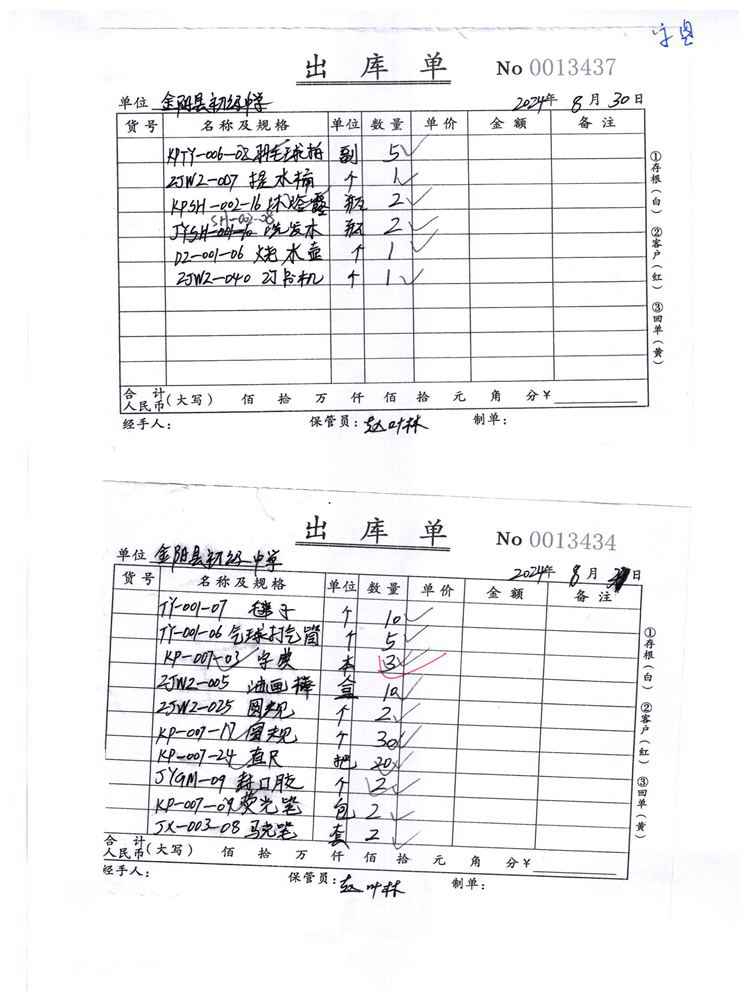 出库单 No 0013437
单位 金阳县初级中学 2024年 8月 30日
货号 名称及规格 单位 数量 单价 金额 备注
KPTY-006-08 羽毛球拍 副 5
ZJWZ-007 提水桶 个 1
KPSH-002-16 沐浴露 瓶 2
SH-002-08
JYSH-001-10 洗发水 瓶 2
DZ-001-06 烧水壶 个 1
ZJWZ-040 订书机 个 1
合计
人民币(大写) 佰 拾 万 仟 佰 拾 元 角 分¥
经手人: 保管员:赵叶林 制单:
①存根(白) ②客户(红) ③回单(黄)
出库单 No 0013434
单位 金阳县初级中学 2024年 8月 日
货号 名称及规格 单位 数量 单价 金额 备注
TY-001-07 毽子 个 10
TY-001-06 气球打气筒 个 5
KP-007-03 字典 本 3
ZJWZ-005 油画棒 盒 10
ZJWZ-025 圆规 个 2
KP-007-17 圆规 个 30
KP-007-24 直尺 把 20
JYGM-09 封口胶 个 2
KP-007-09 荧光笔 包 2
JX-003-08 马克笔 套 2
合计
人民币(大写) 佰 拾 万 仟 佰 拾 元 角 分¥
经手人: 保管员:赵叶林 制单:
①存根(白) ②客户(红) ③回单(黄)